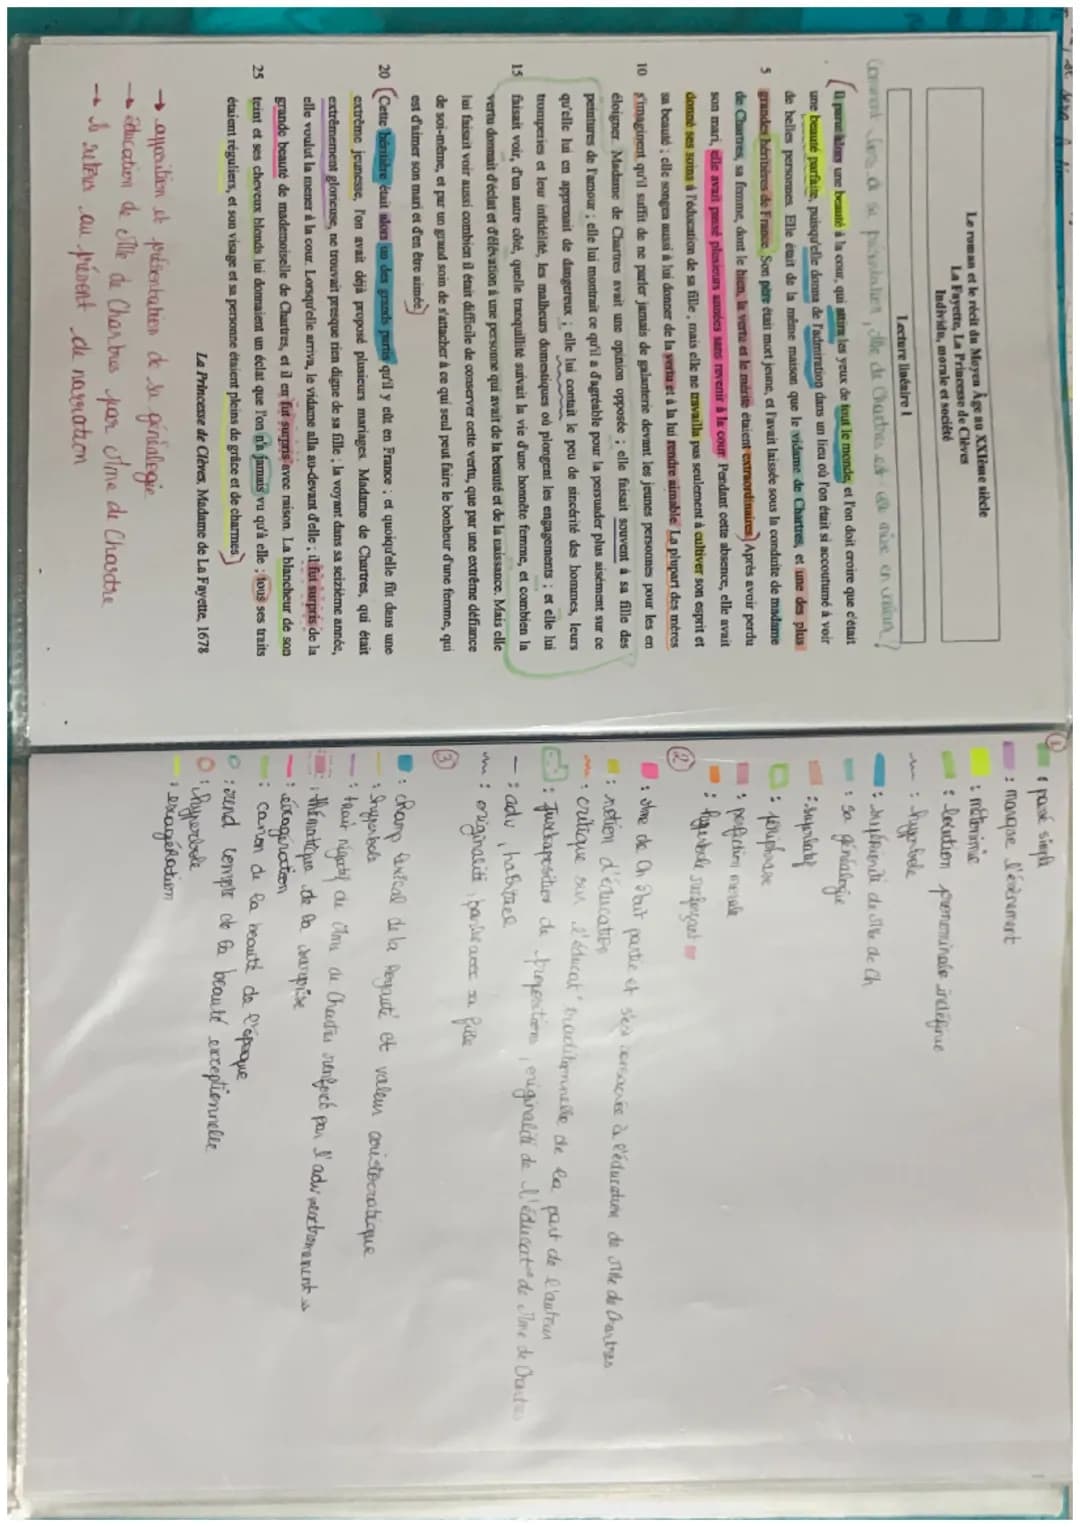 Le roman et le récit du Moyen Âge au XXIème siècle
La Fayette, La Princesse de Clèves
Individu, morale et société
Lecture linéaire 1
Comment lors de sa présentation, Mlle de Chartres est-elle mise en valeur ?
Il parut alors une beauté à la cour, qui attira les yeux de tout le monde, et l'on doit croire que c'était
une beauté parfaite, puisqu'elle donna de l'admiration dans un lieu où l'on était si accoutumé à voir
de belles personnes. Elle était de la même maison que le vidame de Chartres, et une des plus
5 grandes héritières de France. Son père était mort jeune, et l'avait laissée sous la conduite de madame
de Chartres, sa femme, dont le bien, la vertu et le mérite étaient extraordinaires. Après avoir perdu
son mari, elle avait passé plusieurs années sans revenir à la cour. Pendant cette absence, elle avait
donné ses soins à l'éducation de sa fille ; mais elle ne travailla pas seulement à cultiver son esprit et
sa beauté ; elle songea aussi à lui donner de la vertu et à la lui rendre aimable. La plupart des mères
10 s'imaginent qu'il suffit de ne parler jamais de galanterie devant les jeunes personnes pour les en
éloigner. Madame de Chartres avait une opinion opposée ; elle faisait souvent à sa fille des
peintures de l'amour ; elle lui montrait ce qu'il a d'agréable pour la persuader plus aisément sur ce
qu'elle lui en apprenait de dangereux ; elle lui contait le peu de sincérité des hommes, leurs
tromperies et leur infidélité, les malheurs domestiques où plongent les engagements ; et elle lui
15 faisait voir, d'un autre côté, quelle tranquillité suivait la vie d'une honnête femme, et combien la
vertu donnait d'éclat et d'élévation à une personne qui avait de la beauté et de la naissance. Mais elle
lui faisait voir aussi combien il était difficile de conserver cette vertu, que par une extrême défiance
de soi-même, et par un grand soin de s'attacher à ce qui seul peut faire le bonheur d'une femme, qui
est d'aimer son mari et d'en être aimée.
20 Cette héritière était alors un des grands partis qu'il y eût en France ; et quoiqu'elle fût dans une
extrême jeunesse, l'on avait déjà proposé plusieurs mariages. Madame de Chartres, qui était
extrêmement glorieuse, ne trouvait presque rien digne de sa fille ; la voyant dans sa seizième année,
elle voulut la mener à la cour. Lorsqu'elle arriva, le vidame alla au-devant d'elle ; il fut surpris de la
grande beauté de mademoiselle de Chartres, et il en fut surpris avec raison. La blancheur de son
25 teint et ses cheveux blonds lui donnaient un éclat que l'on n'a jamais vu qu'à elle ; tous ses traits
étaient réguliers, et son visage et sa personne étaient pleins de grâce et de charmes.
La Princesse de Clèves, Madame de La Fayette, 1678
→ apparition et présentation de sa généalogie
→ éducation de Mlle de Chartres par Mme de Chartre
→ le retour au présent de narration
①
: passé simple
: marque l'évènement
: métonimie
: locution pronominale indéfinie
: hyperbole
: supériorité de Mlle de Ch
: sa généalogie
: superlatif
: périphrase
: perfection morale
: hyperbole
②
: Mme de Ch était partie et s'est consacrée à l'éducation de Mlle de Chartres
: notion d'éducation
: critique sur l'éducat° traditionnelle de la part de l'auteur
: juxtaposition de propositions, originalité de l'éducat° de Mme de Chartres
: adv, habituel
: originalité, parle avec sa fille
③
: champ lexical de la royauté et valeur aristocratique
: hyperbole
: trait négatif de Mme de Chartres renforcé par l'adv extrêmement
: thématique de la surprise
: exagération
: canon de la beauté de l'époque
: rend compte de sa beauté exceptionnelle
: hyperbole
: exagération